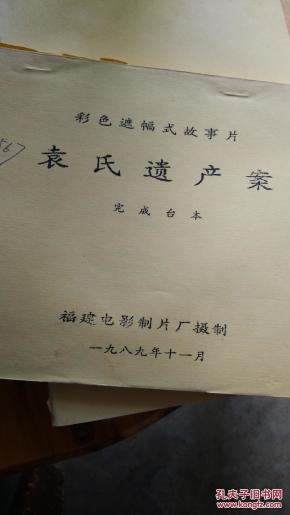 彩色遮幅式故事片
袁氏遗产案
完成台本
福建电影制片厂摄制
一九八九年十一月
孔夫子旧书网